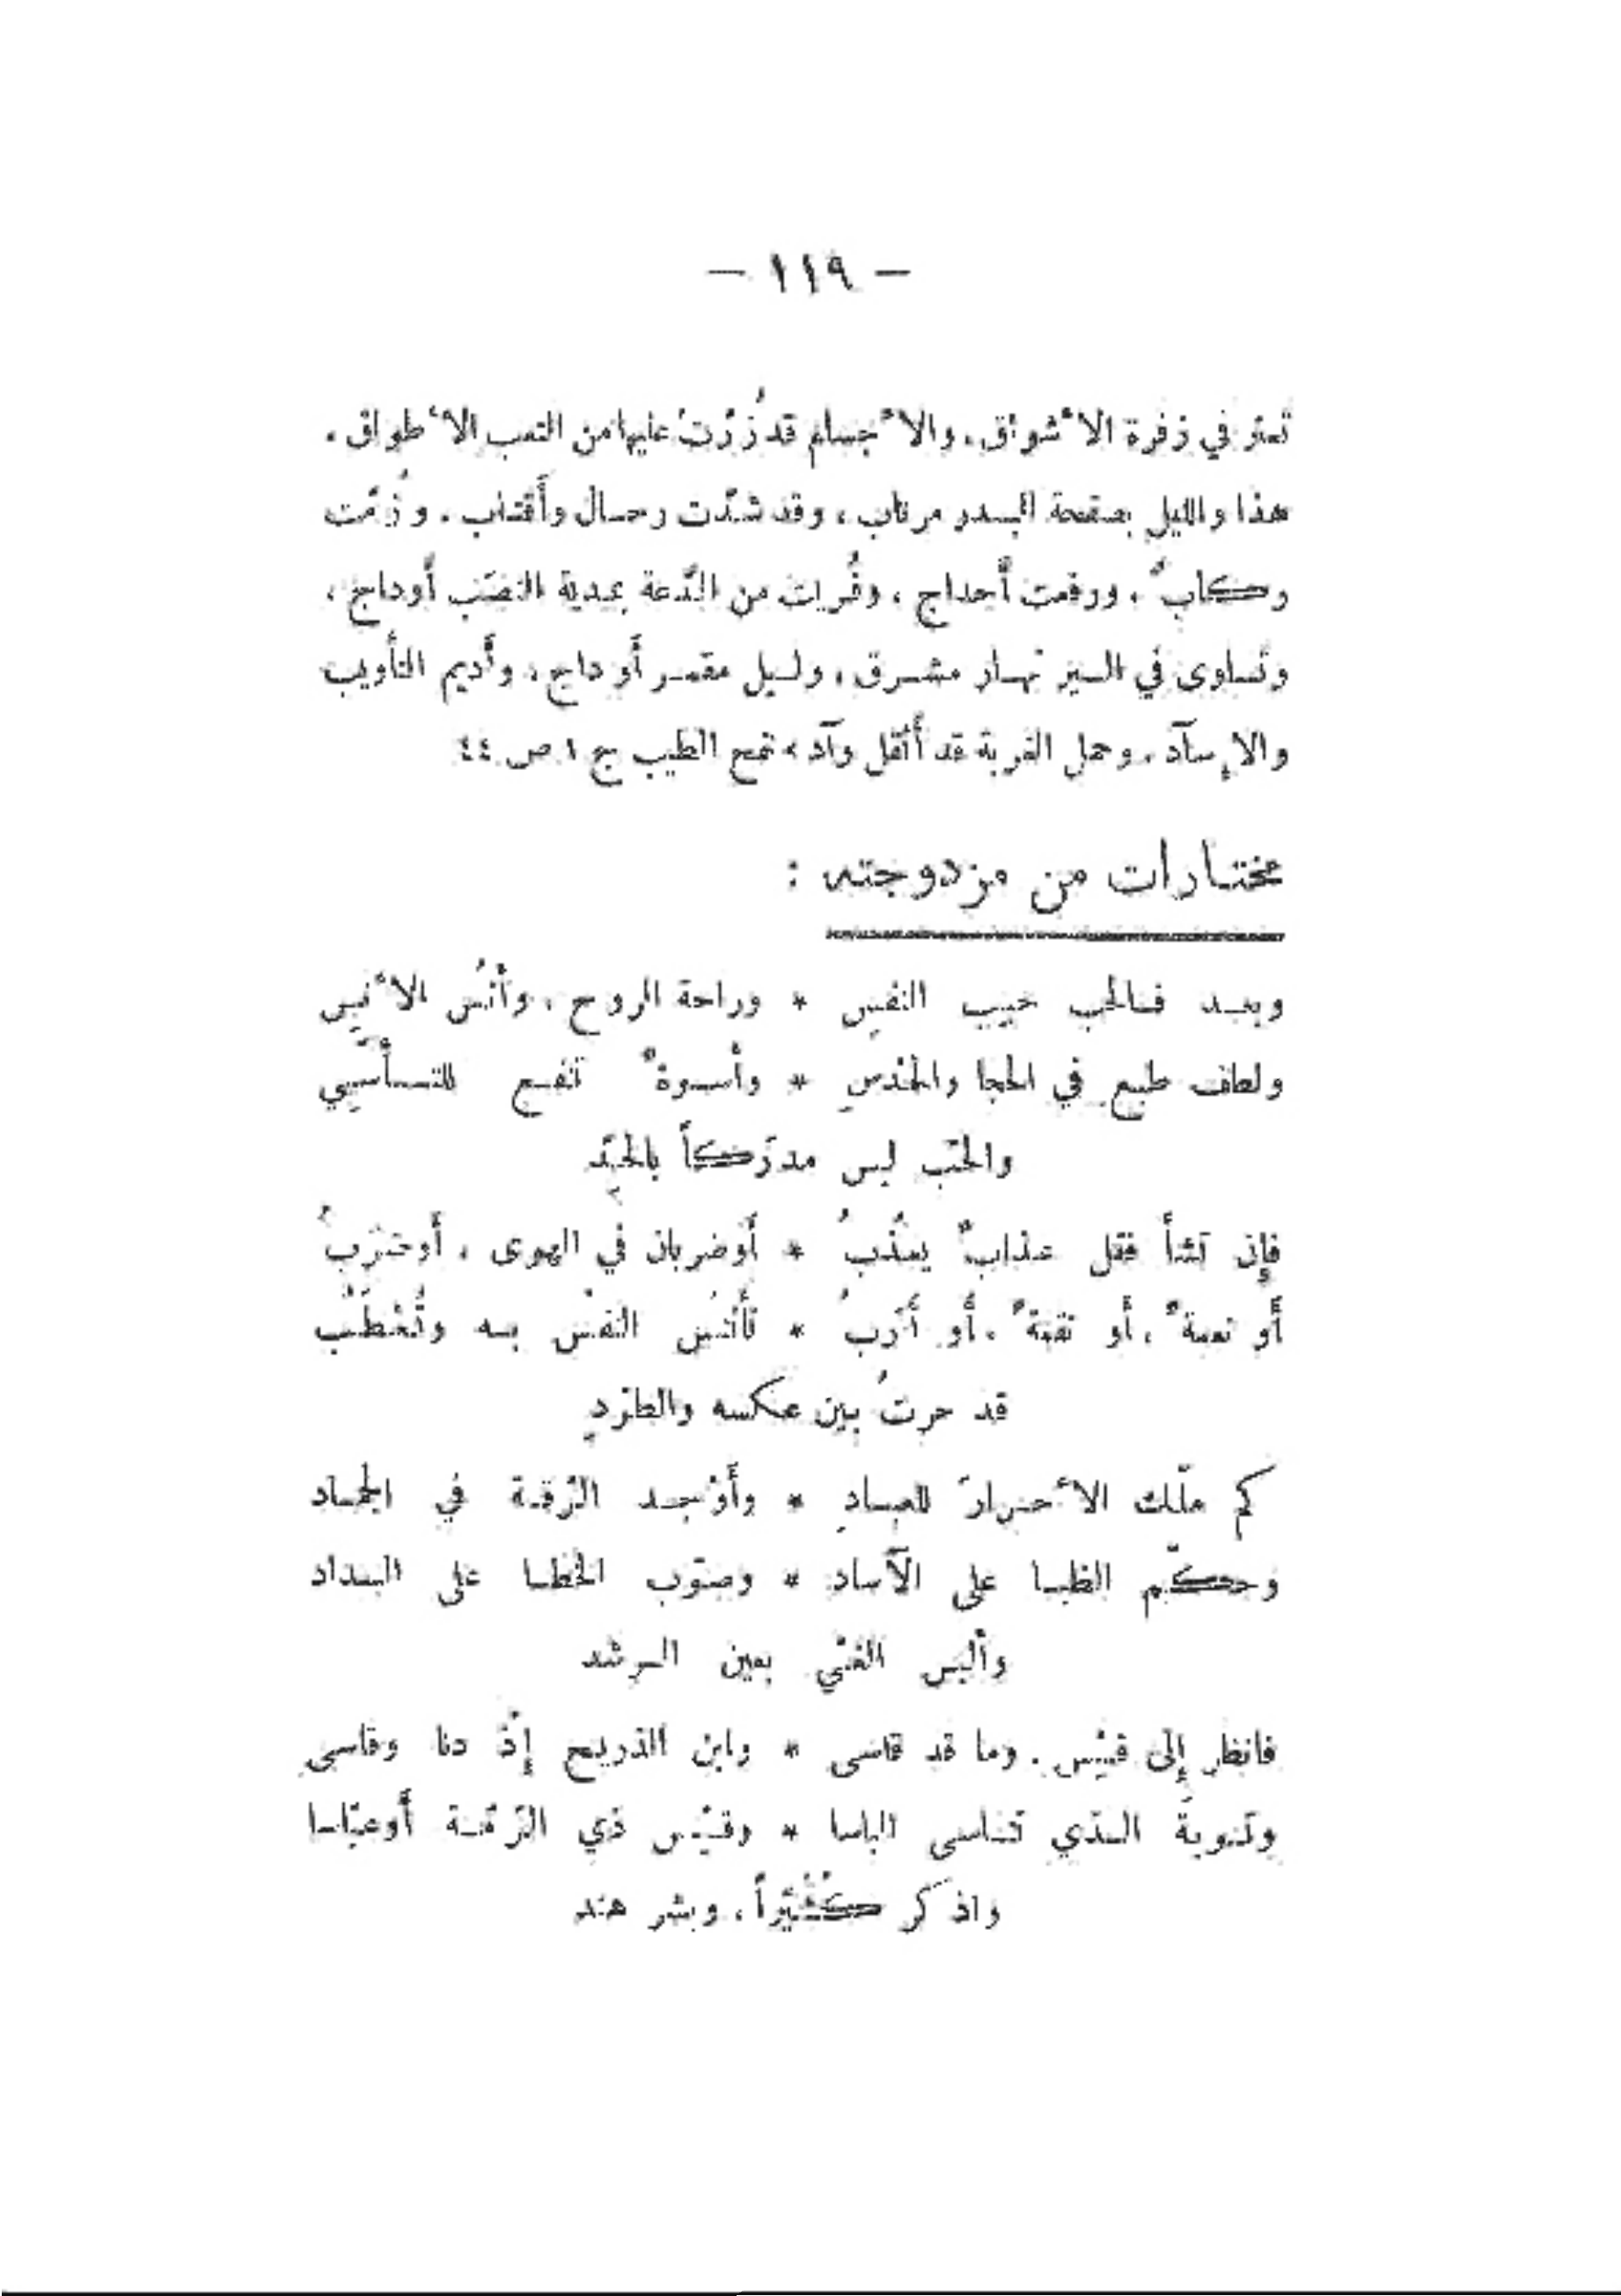 — ١١٩ —
تعثر في زفرة الأشواق، والأجسام قد زُرَّتْ عليها من التعب الأطواق،
هذا والليل بصفحة البدر مرتاب، وقد شدّت رحال وأقتاب، وزُمّت
ركابٌ، ورفعت أحداج، وفُريت من الدّعة بمدية النصَب أوداج،
وتساوى في السير نهار مشرق، وليل مقمر أو داج، وأديم التأويب
والإسآد، وحمل الغربة قد أثقل وآد» نفح الطيب ج ١ ص ٤٤
مختارات من مزدوجته :
وبعد فالحب حبيب النفسِ * وراحة الروح، وأُنْسُ الأنْسِ
ولطف طبعٍ في الحجا والحدْسِ * وأُسوةٌ تنفع للتأسّي
والحبّ ليس مدرَكاً بالحدِّ
فإن تشأ فقل عذابٌ يعذُبُ * أوْ ضربان في الهوى، أو ضَرَبُ
أو نعمةٌ، أو نقمةٌ، أو أَرَبُ * تأنَسُ النفْس به وتَعْطَبُ
قد حرتُ بين عكسه والطرْدِ
كم ملّك الأحرارَ للعبادِ * وأوْجد الرّقة في الجماد
وحكّم الظبا على الآساد * وصوّب الخطا على السداد
وألبس الغيّ بعين الرشد
فانظر إلى قيْس، وما قد قاسى * وابن الذريح إذْ دنا وقاسى
وتوبةَ الذي تناسى الباسا * وقيْس ذي الرّقة أو عبّاسا
واذكر كُثَيّراً، وبشر هند